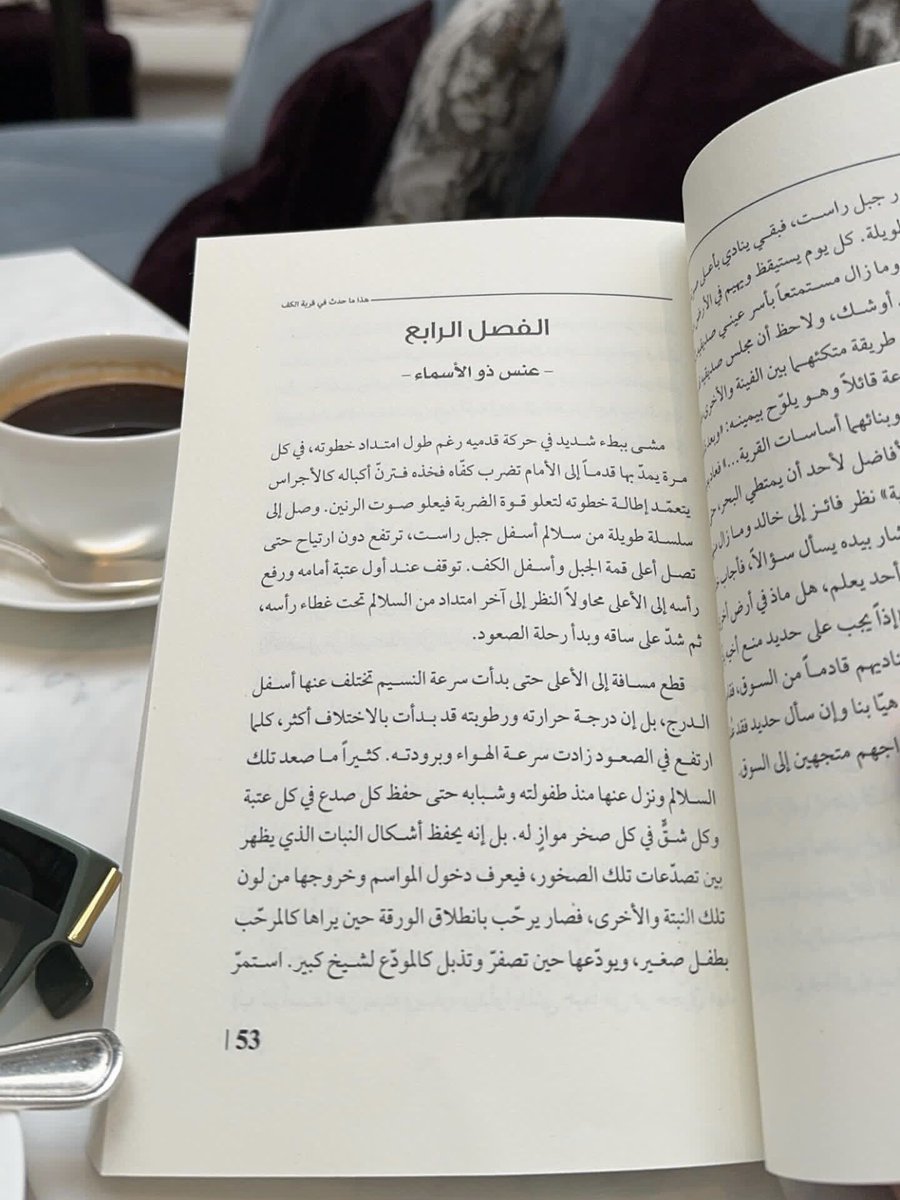 جبل راست، فبقي ينادي بأعلى
طويلة. كل يوم يستيقظ ويهيم في
وما زال مستمتعاً بأسر عيني
أوشك، ولاحظ أن مجلس
طريقة متكئهما بين الفينة والأخرى
قائلاً وهو يلوّح بيمينه:
وبنائهما أساسات القرية...»
لأفضل لأحد أن يمتطي البحر،
نظر فائز إلى خالد وما زال
بيده يسأل سؤالاً،
أحد يعلم، هل ماذ في أرض
إذاً يجب على حديد منع
يناديهم قادماً من السوق،
هيّا بنا وإن سأل حديد
متجهين إلى السوق
هذا ما حدث في قرية الكف
الفصل الرابع
- عنس ذو الأسماء -
مشى ببطء شديد في حركة قدميه رغم طول امتداد خطوته، في كل
مرة يمدّ بها قدماً إلى الأمام تضرب كفّاه فخذه فترنّ أكباله كالأجراس
يتعمّد إطالة خطوته لتعلو قوة الضربة فيعلو صوت الرنين. وصل إلى
سلسلة طويلة من سلالم أسفل جبل راست، ترتفع دون ارتياح حتى
تصل أعلى قمة الجبل وأسفل الكف. توقف عند أول عتبة أمامه ورفع
رأسه إلى الأعلى محاولاً النظر إلى آخر امتداد من السلالم تحت غطاء رأسه،
ثم شدّ على ساقه وبدأ رحلة الصعود.
قطع مسافة إلى الأعلى حتى بدأت سرعة النسيم تختلف عنها أسفل
الدرج، بل إن درجة حرارته ورطوبته قد بدأت بالاختلاف أكثر، كلما
ارتفع في الصعود زادت سرعة الهواء وبرودته. كثيراً ما صعد تلك
السلالم ونزل عنها منذ طفولته وشبابه حتى حفظ كل صدع في كل عتبة
وكل شقٍّ في كل صخر موازٍ له. بل إنه يحفظ أشكال النبات الذي يظهر
بين تصدّعات تلك الصخور، فيعرف دخول المواسم وخروجها من لون
تلك النبتة والأخرى، فصار يرحّب بانطلاق الورقة حين يراها كالمرحّب
بطفل صغير، ويودّعها حين تصفرّ وتذبل كالمودّع لشيخ كبير. استمرّ
53 |